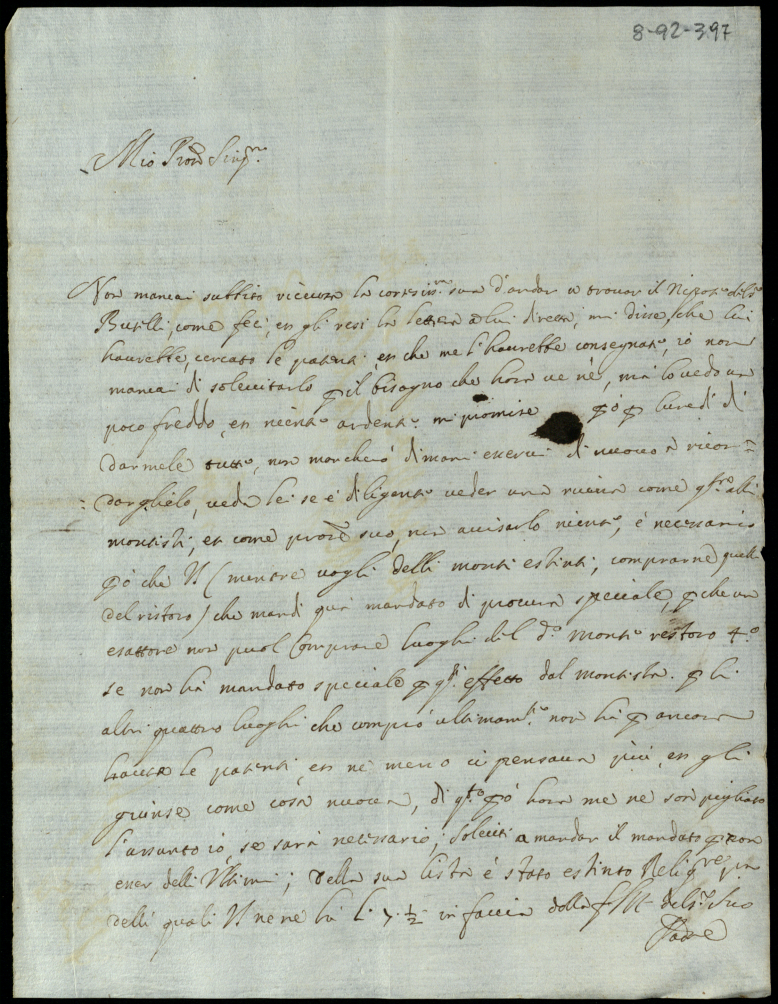 8-92-397
Mio Pron Sing.re
Non mancai subbito riceuuta la cortesis.ma sua d'andar a trouar il Nipote del S.r
Butelli, come feci, et gli resi la lettera a lui diretta, mi disse, che lui
haurebbe cercato le patenti, et che me l'haurebbe consegnate, io non
mancai di solecitarlo p il bisogno che hora ue n'è, ma lo uedo un
poco freddo, et niente ardente mi promise pò p lunedi di
darmele tutte, non mancherò dimani esserui di nuouo à ricor=
darglielo, ueda lei se è diligente ueder una ruina come q.sta alli
montisti, et come pron suo, non auisarlo niente, è necessario
pò che V.S. (mentre uogli delli monti estinti, comprarne quelli
del ristoro) che mandi quà mandato di procura speciale, p che un
esattore non puol comprare luoghi del d.o monte restoro 4.o
se non hà mandato speciale p q.sti effetto dal montista. p li
altri quattro luoghi che comprò ultimam.te non hà p ancora
hauute le patenti, et ne meno ci pensaua più, et gli
giunse come cosa nuoua, di q.sto pò hora me ne son pigliato
l'assunto io, se sarà necessario; soleciti a mandar il mandato p non
esser delli Vltimi; della sua lista è stato estinto Relig.re p.a
delli quali V.S. ne ne hà l. 7 ½ in faccia dolla f. M. del S.r Suo
Padre